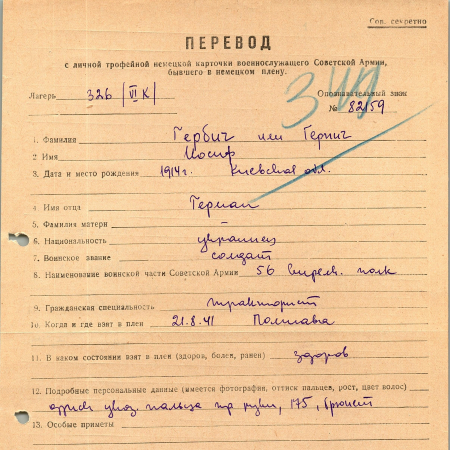 Сов. секретно
ПЕРЕВОД
с личной трофейной немецкой карточки военнослужащего Советской Армии,
бывшего в немецком плену.
Лагерь 326 /VI K/ Опознавательный знак
№ 82159
1. Фамилия Гербич или Герпич
2 Имя Иосиф
3. Дата и место рождения 1914г. Киевская обл.
4. Имя отца Герман
5. Фамилия матери
6. Национальность украинец
7. Воинское звание солдат
8. Наименование воинской части Советской Армии 56 стрелк. полк
9. Гражданская специальность тракторист
10. Когда и где взят в плен 21.8.41 Полтава
11. В каком состоянии взят в плен (здоров, болен, ранен) здоров
12. Подробные персональные данные (имеется фотография, оттиск пальцев, рост, цвет волос)
пальца пр руки, 175, брюнет
13. Особые приметы